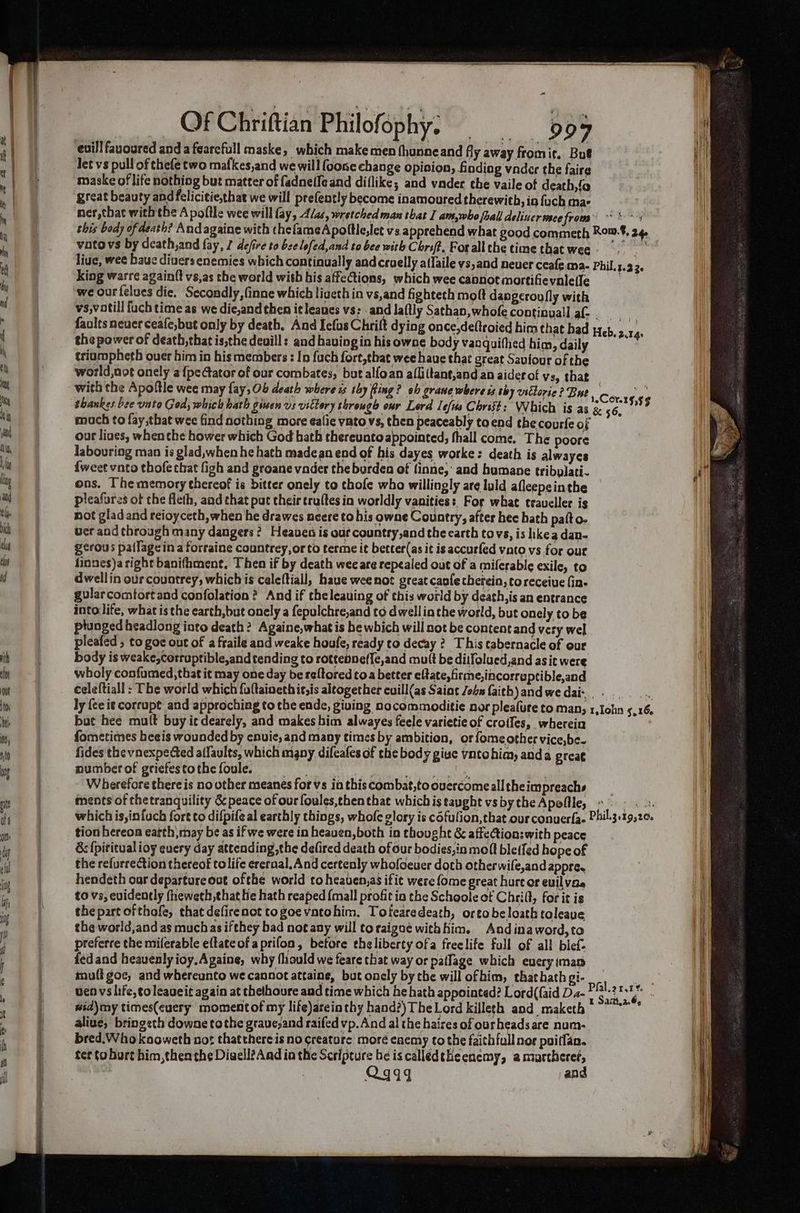 Of Chriſtian Philoſophy. 997
euill fauoured and a fearefull maske, which make men ſhunne and fly away from it. But
let vs pull of theſe two maſkes, and we will ſoone change opinion, finding vnder the faire
maske of life nothing but matter of ſadneſſe and diſlike; and vnder the vaile of death, ſo
great beauty and felicitie, that we will preſently become inamoured therewith, in ſuch ma-
ner, that with the Apoſtle wee will ſay, Alas, wretched man that I am, who ſhall deliuer mee from
this body of death? And againe with the ſame Apoſtle, let vs apprehend what good commeth Rom.8, 24.
vnto vs by death, and ſay, I deſire to bee loſed, and to bee with Chriſt. For all the time that wee
liue, wee haue diuers enemies which continually and cruelly aſſaile vs, and neuer ceaſe ma- Phil.1.23.
king warre againſt vs, as the world with his affections, which wee cannot mortifie vnleſſe
we our ſelues die. Secondly, ſinne which liueth in vs, and fighteth moſt dangerouſly with
vs, vntill ſuch time as we die, and then it leaues vs: and laſtly Sathan, whoſe continuall aſ-
ſaults neuer ceaſe, but only by death. And Ieſus Chriſt dying once, deſtroied him that had Heb. 2,14.
the power of death, that is, the deuill: and hauing in his owne body vanquiſhed him, daily
triumpheth ouer him in his members: In ſuch ſort, that wee haue that great Sauiour of the
world, not onely a ſpectator of our combates, but alſo an aſſiſtant, and an aider of vs, that
with the Apoſtle wee may ſay, Oh death where is thy ſting? oh graue where is thy victorie? But 1.Cor.15,55
thankes bee vnto God, which hath giuen vs victory through our Lord Ieſus Christ: Which is as & 56.
much to ſay, that wee find nothing more eaſie vnto vs, then peaceably to end the courſe of
our liues, when the hower which God hath thereunto appointed, ſhall come. The poore
labouring man is glad, when he hath made an end of his dayes worke: death is alwayes
ſweet vnto thoſe that ſigh and groane vnder the burden of ſinne, and humane tribulati-
ons. The memory thereof is bitter onely to thoſe who willingly are luld aſleepe in the
pleaſures of the fleſh, and that put their truſtes in worldly vanities: For what traueller is
not glad and reioyceth, when he drawes neere to his owne Country, after hee hath paſt o-
uer and through many dangers? Heauen is our country, and the earth to vs, is like a dan-
gerous paſſage in a forraine countrey, or to terme it better (as it is accurſed vnto vs for our
ſinnes) a right baniſhment. Then if by death wee are repealed out of a miſerable exile, to
dwell in our countrey, which is celeſtiall, haue wee not great cauſe therein, to receiue ſin-
gular comfort and conſolation? And if the leauing of this world by death, is an entrance
into life, what is the earth, but onely a ſepulchre, and to dwell in the world, but onely to be
plunged headlong into death? Againe, what is he which will not be content and very wel
pleaſed, to goe out of a fraile and weake houſe, ready to decay? This tabernacle of our
body is weake, corruptible, and tending to rottenneſſe, and muſt be diſſolued, and as it were
wholy conſumed, that it may one day be reſtored to a better eſtate, firme, incorruptible, and
celeſtiall: The world which ſuſtaineth it, is altogether euill (as Saint Iohn ſaith) and we dai-
ly ſee it corrupt and approching to the ende, giuing no commoditie nor pleaſure to man, 1,Iohn 5,16,
but hee muſt buy it dearely, and makes him alwayes feele varietie of croſſes, wherein
ſometimes hee is wounded by enuie, and many times by ambition, or ſome other vice, be-
ſides the vnexpected aſſaults, which many diſeaſes of the body giue vnto him, and a great
number of griefes to the ſoule.
Wherefore there is no other meanes for vs in this combat, to ouercome all the impreach-
ments of the tranquility & peace of our ſoules, then that which is taught vs by the Apoſtle,
which is, in ſuch ſort to diſpiſe al earthly things, whoſe glory is cõfuſion, that our conuerſa- Phil.3.19,20.
tion hereon earth, may be as if we were in heauen, both in thought & affection: with peace
& ſpiritual ioy euery day attending, the deſired death of our bodies, in moſt bleſſed hope of
the reſurrection thereof to life eternal. And certenly whoſoeuer doth otherwiſe, and appre-
hendeth our departure out of the world to heauen, as if it were ſome great hurt or euil vn-
to vs, euidently ſheweth, that he hath reaped ſmall profit in the Schoole of Chriſt, for it is
the part of thoſe, that deſire not to goe vnto him. To feare death, or to be loath to leaue
the world, and as much as if they had not any will to raigne with him. And in a word, to
preferre the miſerable eſtate of a priſon, before the liberty of a free life full of all bleſ-
ſed and heauenly ioy. Againe, why ſhould we feare that way or paſſage which euery man
muſt goe, and whereunto we cannot attaine, but onely by the will of him, that hath gi-
uen vs life, to leaue it again at the houre and time which he hath appointed? Lord (ſaid Da- Pſal.31,15.
uid) my times (euery moment of my life) are in thy hand?) The Lord killeth and maketh 1 Sam,2.6,
aliue, bringeth downe to the graue, and raiſed vp. And al the haires of our heads are num-
bred. Who knoweth not that there is no creature more enemy to the faithfull nor puiſſan-
ter to hurt him, then the Diuell? And in the Scripture he is called the enemy, a murtherer,
Qqqq and